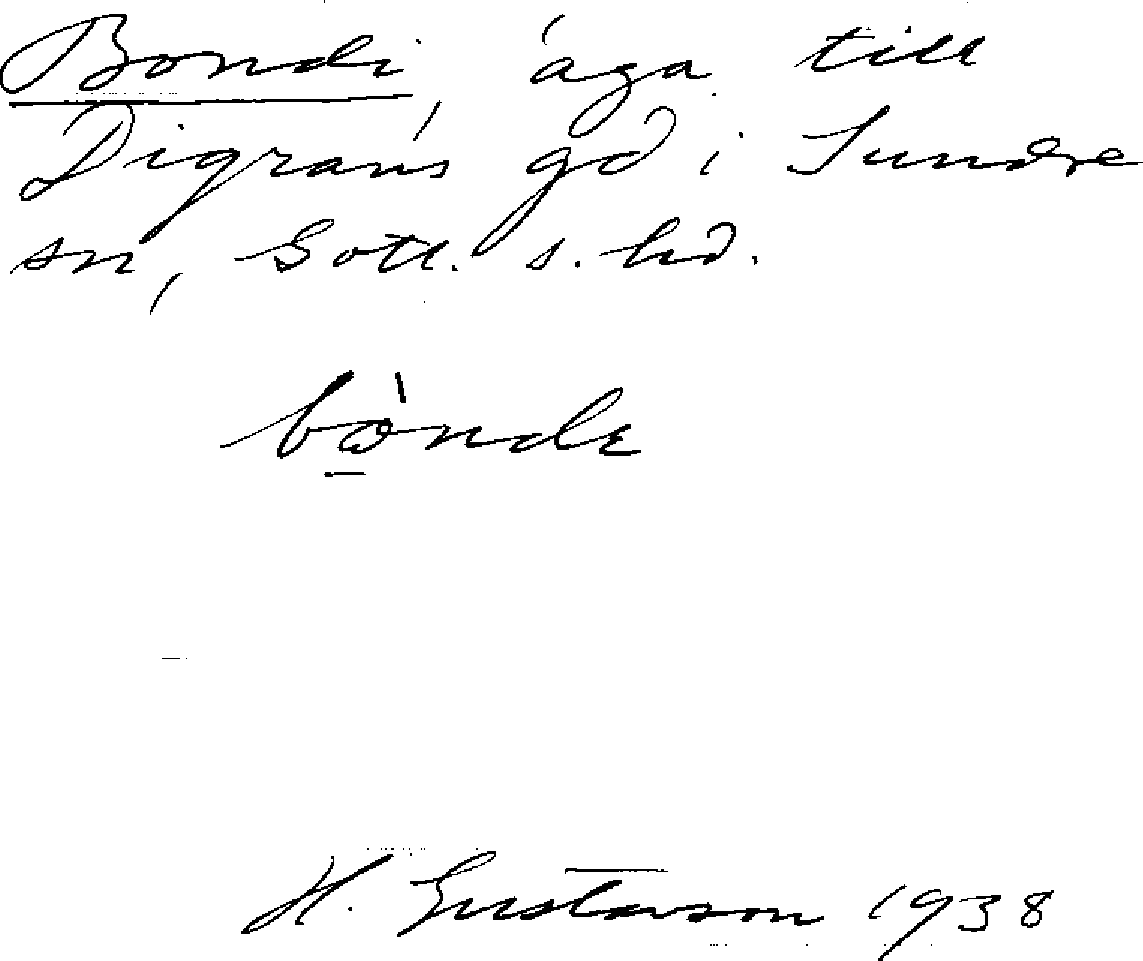 Bondi, åga till
Digrans gd i Sundre
sn, Gotl. s. hd.
bònde
H. Gustavson 1938